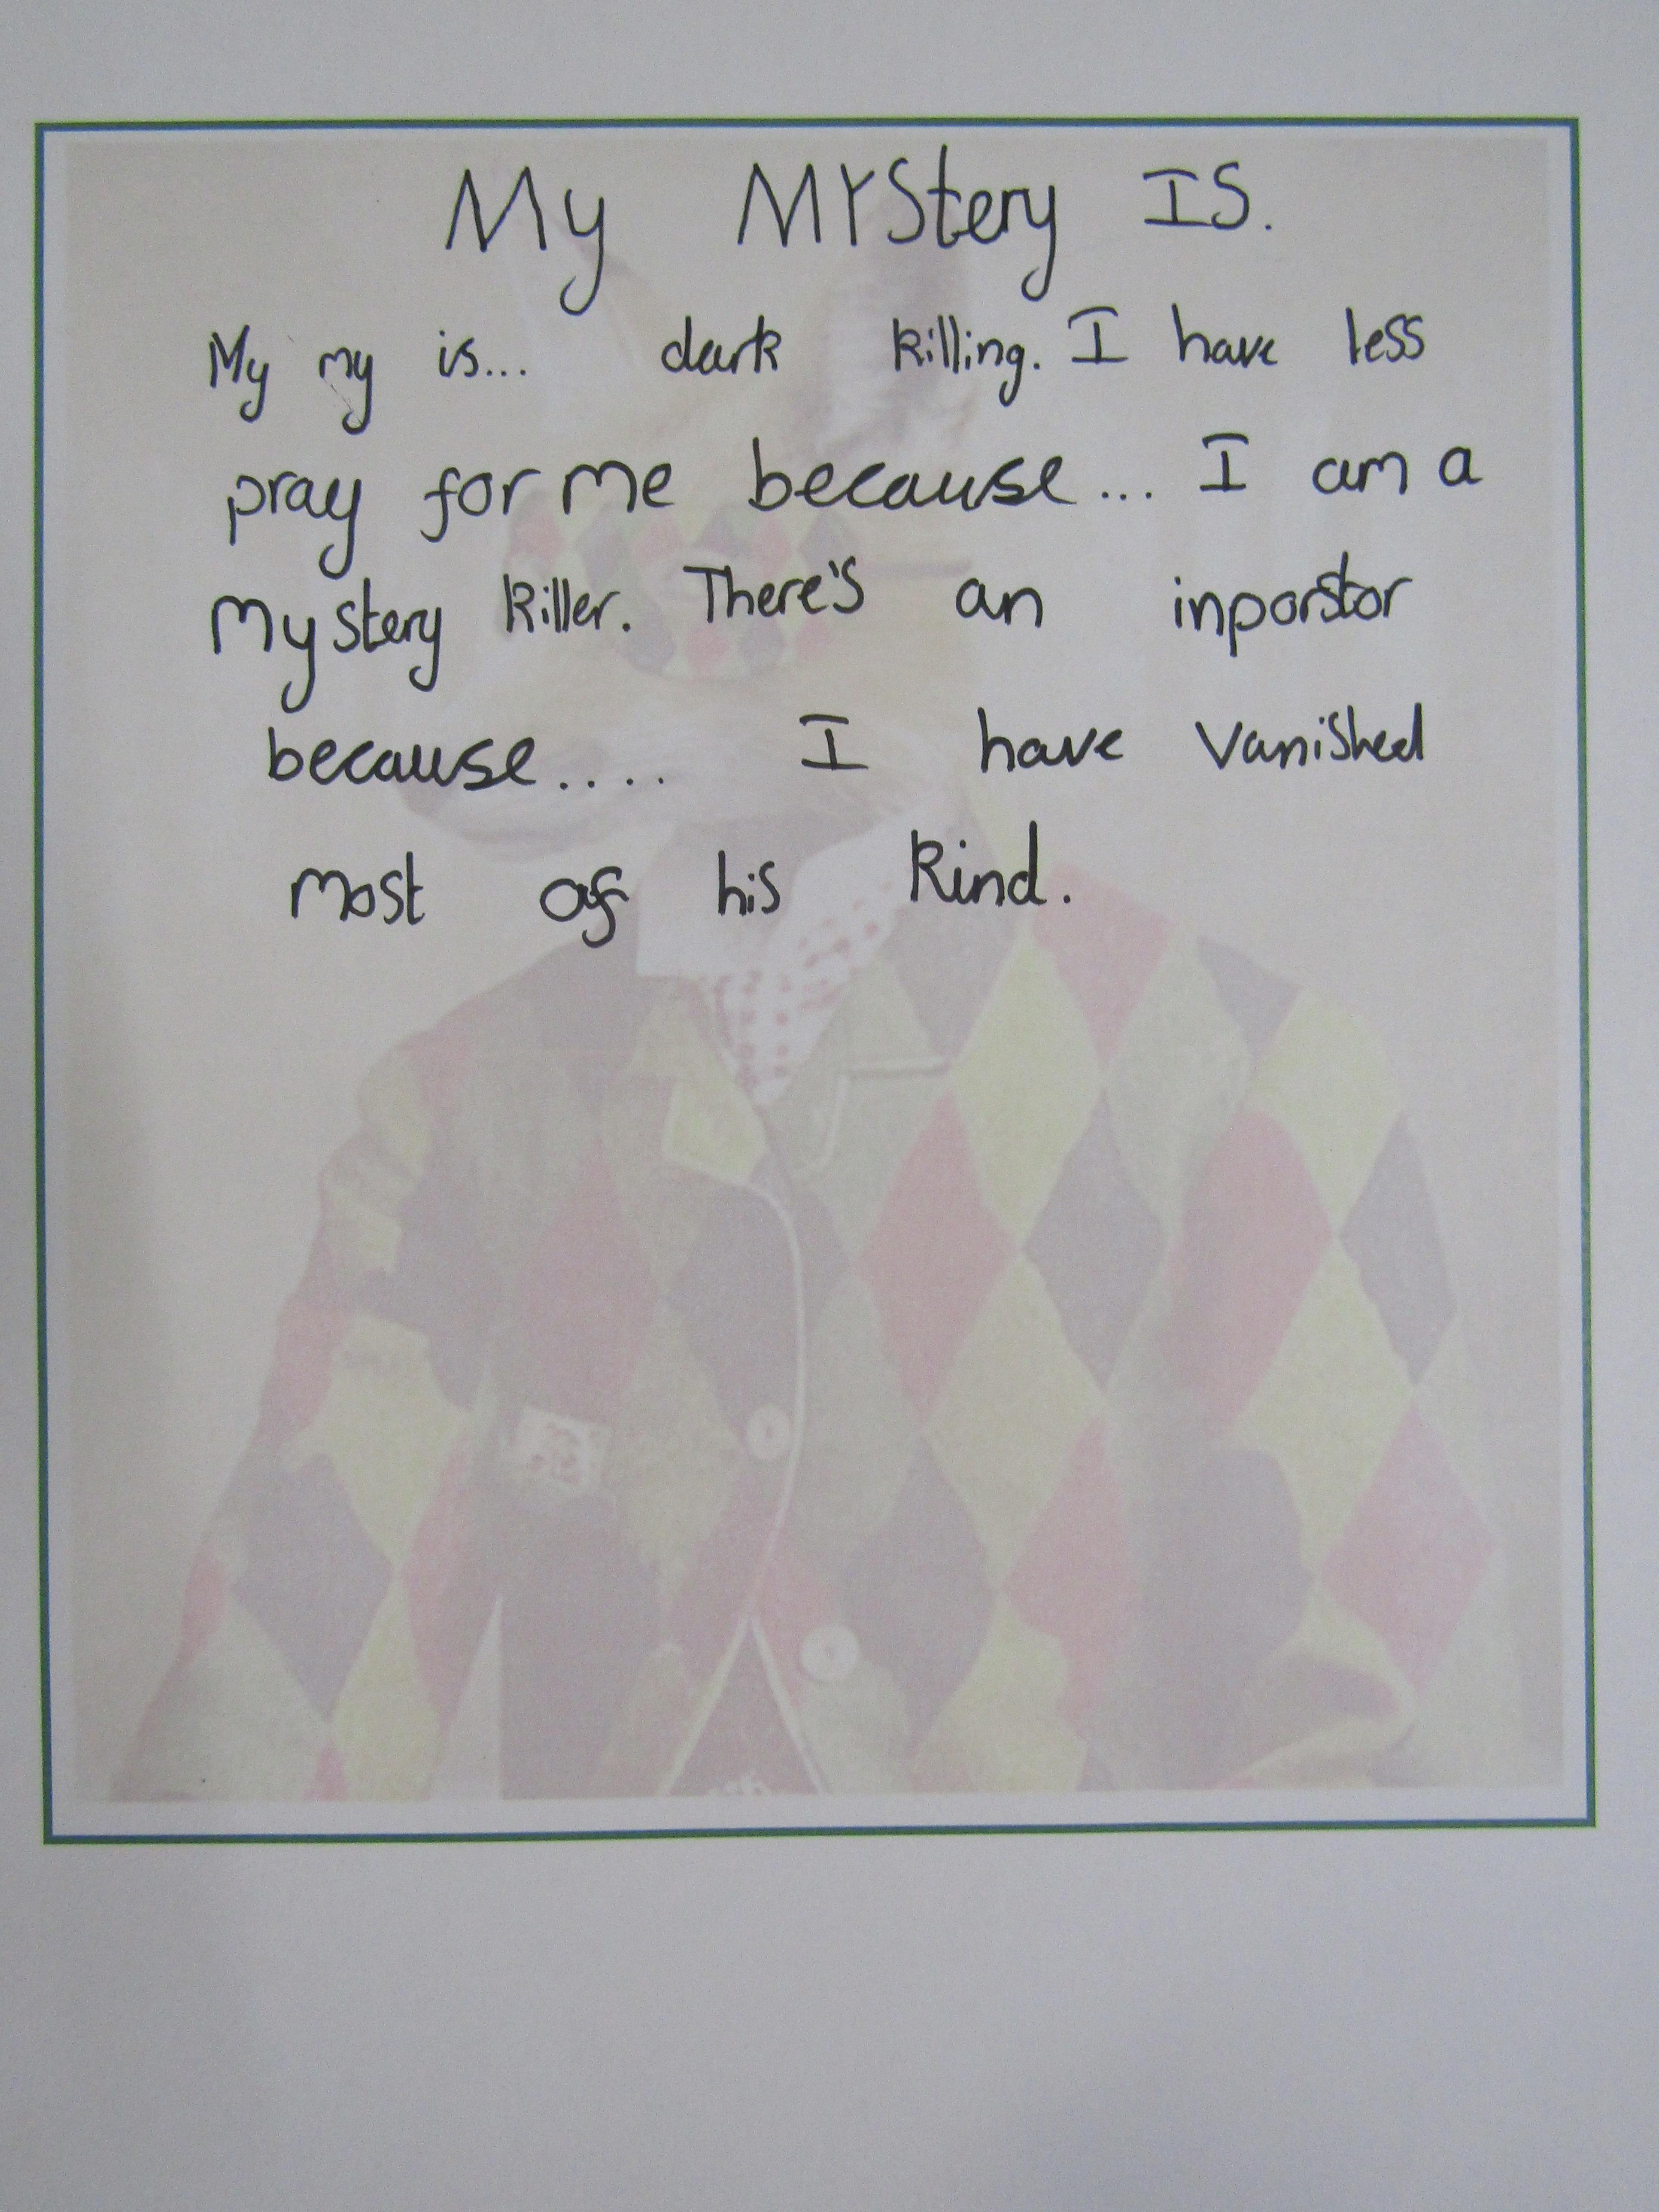 My MYStery IS.
My my is... dark killing. I have less
pray for me because... I am a
mystery killer. There's an inporstor
because.... I have vanished
most of his kind.